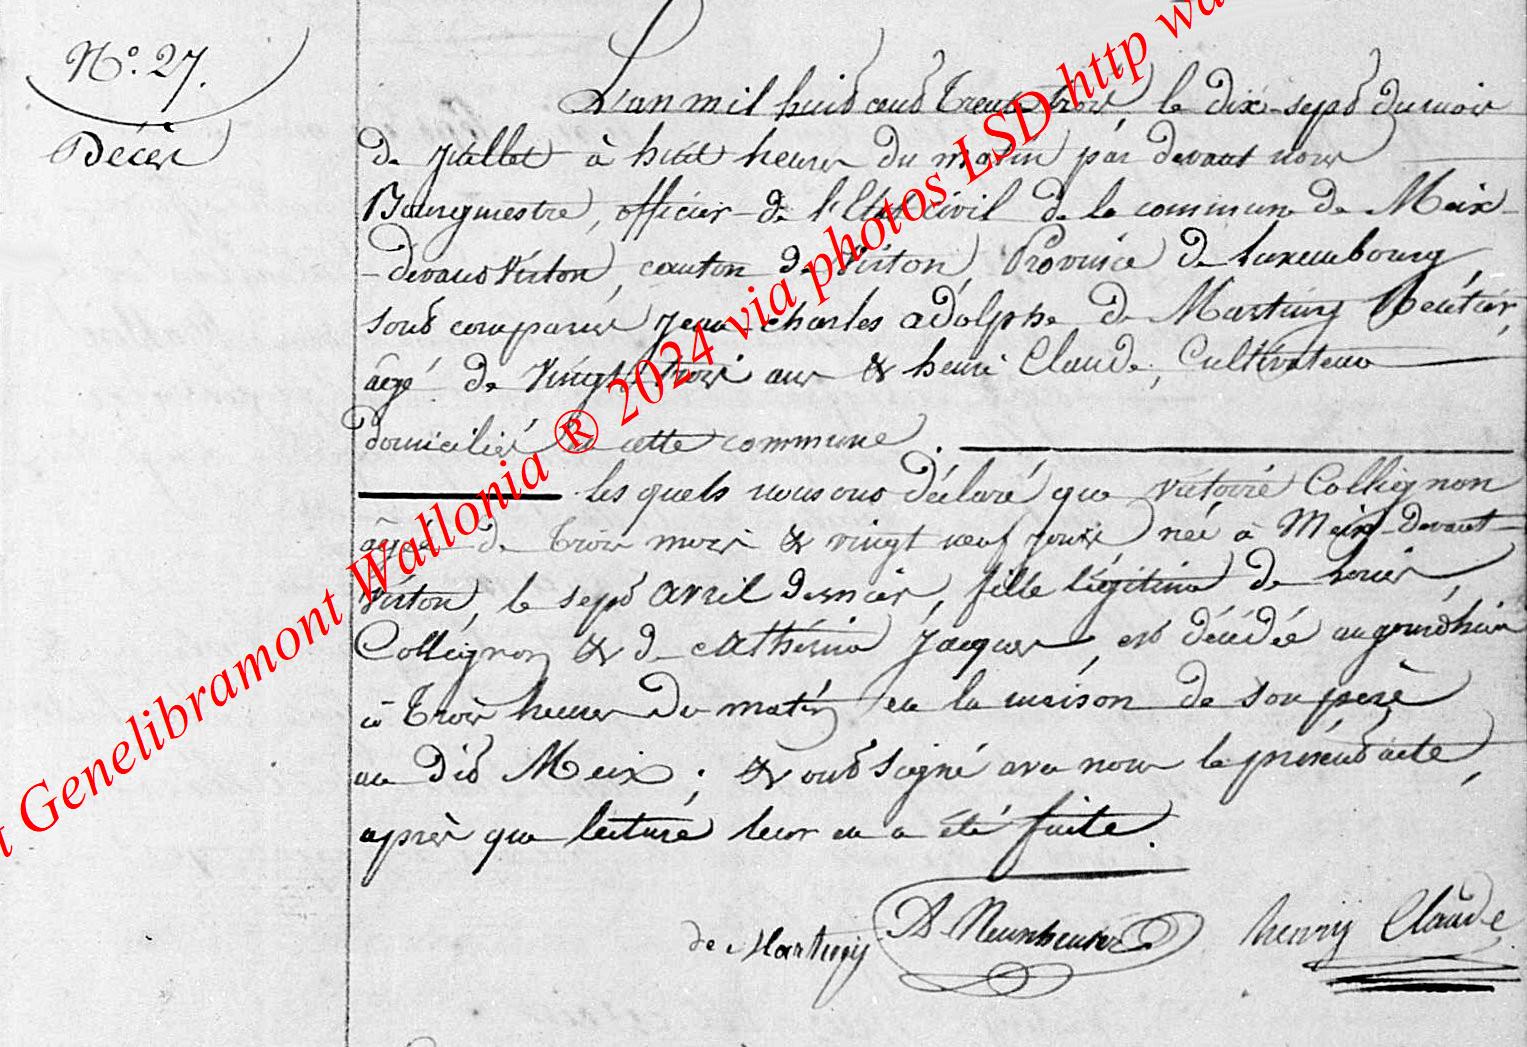 N.º 27.
Décès
L'an mil huit cent trente trois, le dix-sept du mois
de juillet à huit heures du matin par devant nous
Bourgmestre, officier de l'Etat civil de la commune de Meix-
-devant Virton, canton de Virton, Province de Luxembourg
sont comparus Jean-charles adolphe de Martiny Rentier,
âgé de Vingt trois ans & henri Claude, Cultivateur
domiciliés en cette commune.
les quels nous ont déclaré que victoire Collignon
âgée de trois mois & vingt neuf jours née à Meix-devant-
Virton, le sept avril dernier, fille légitime de Louis
Collignon & de Cathérine Jacques, est décédée aujourdhui
à trois heures du matin en la maison de son père
au dit Meix; & ont signé avec nous le présent acte,
après que lecture leur en a été faite.
de Martiny
henry Claude
Genelibramont Wallonia ® 2024 via photos LSD http wa